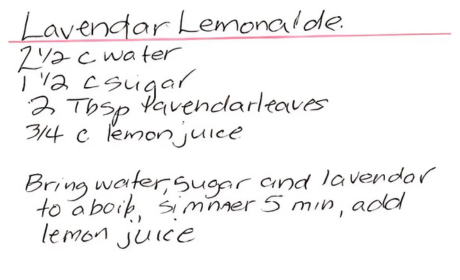 Lavendar Lemonalde.
2 1/2 c water
1 1/2 c sugar
2 Tbsp lavendar leaves
3/4 c lemon juice
Bring water, sugar and lavendar
to a boil, simmer 5 min, add
lemon juice